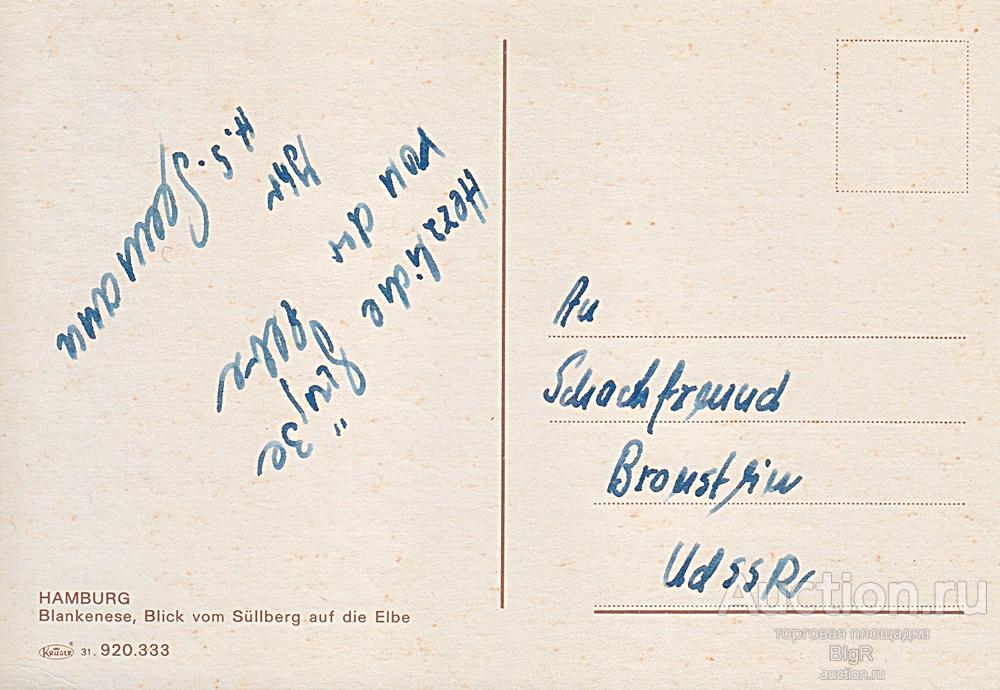 Herzliche
Grüße
von der
Elbe
Ihr
H. S.
An
Schachfreund
Bronstein
UdSSR
HAMBURG
Blankenese, Blick vom Süllberg auf die Elbe
KRÜGER 31. 920.333
Auction.ru
торговая площадка
BIgR
auction.ru